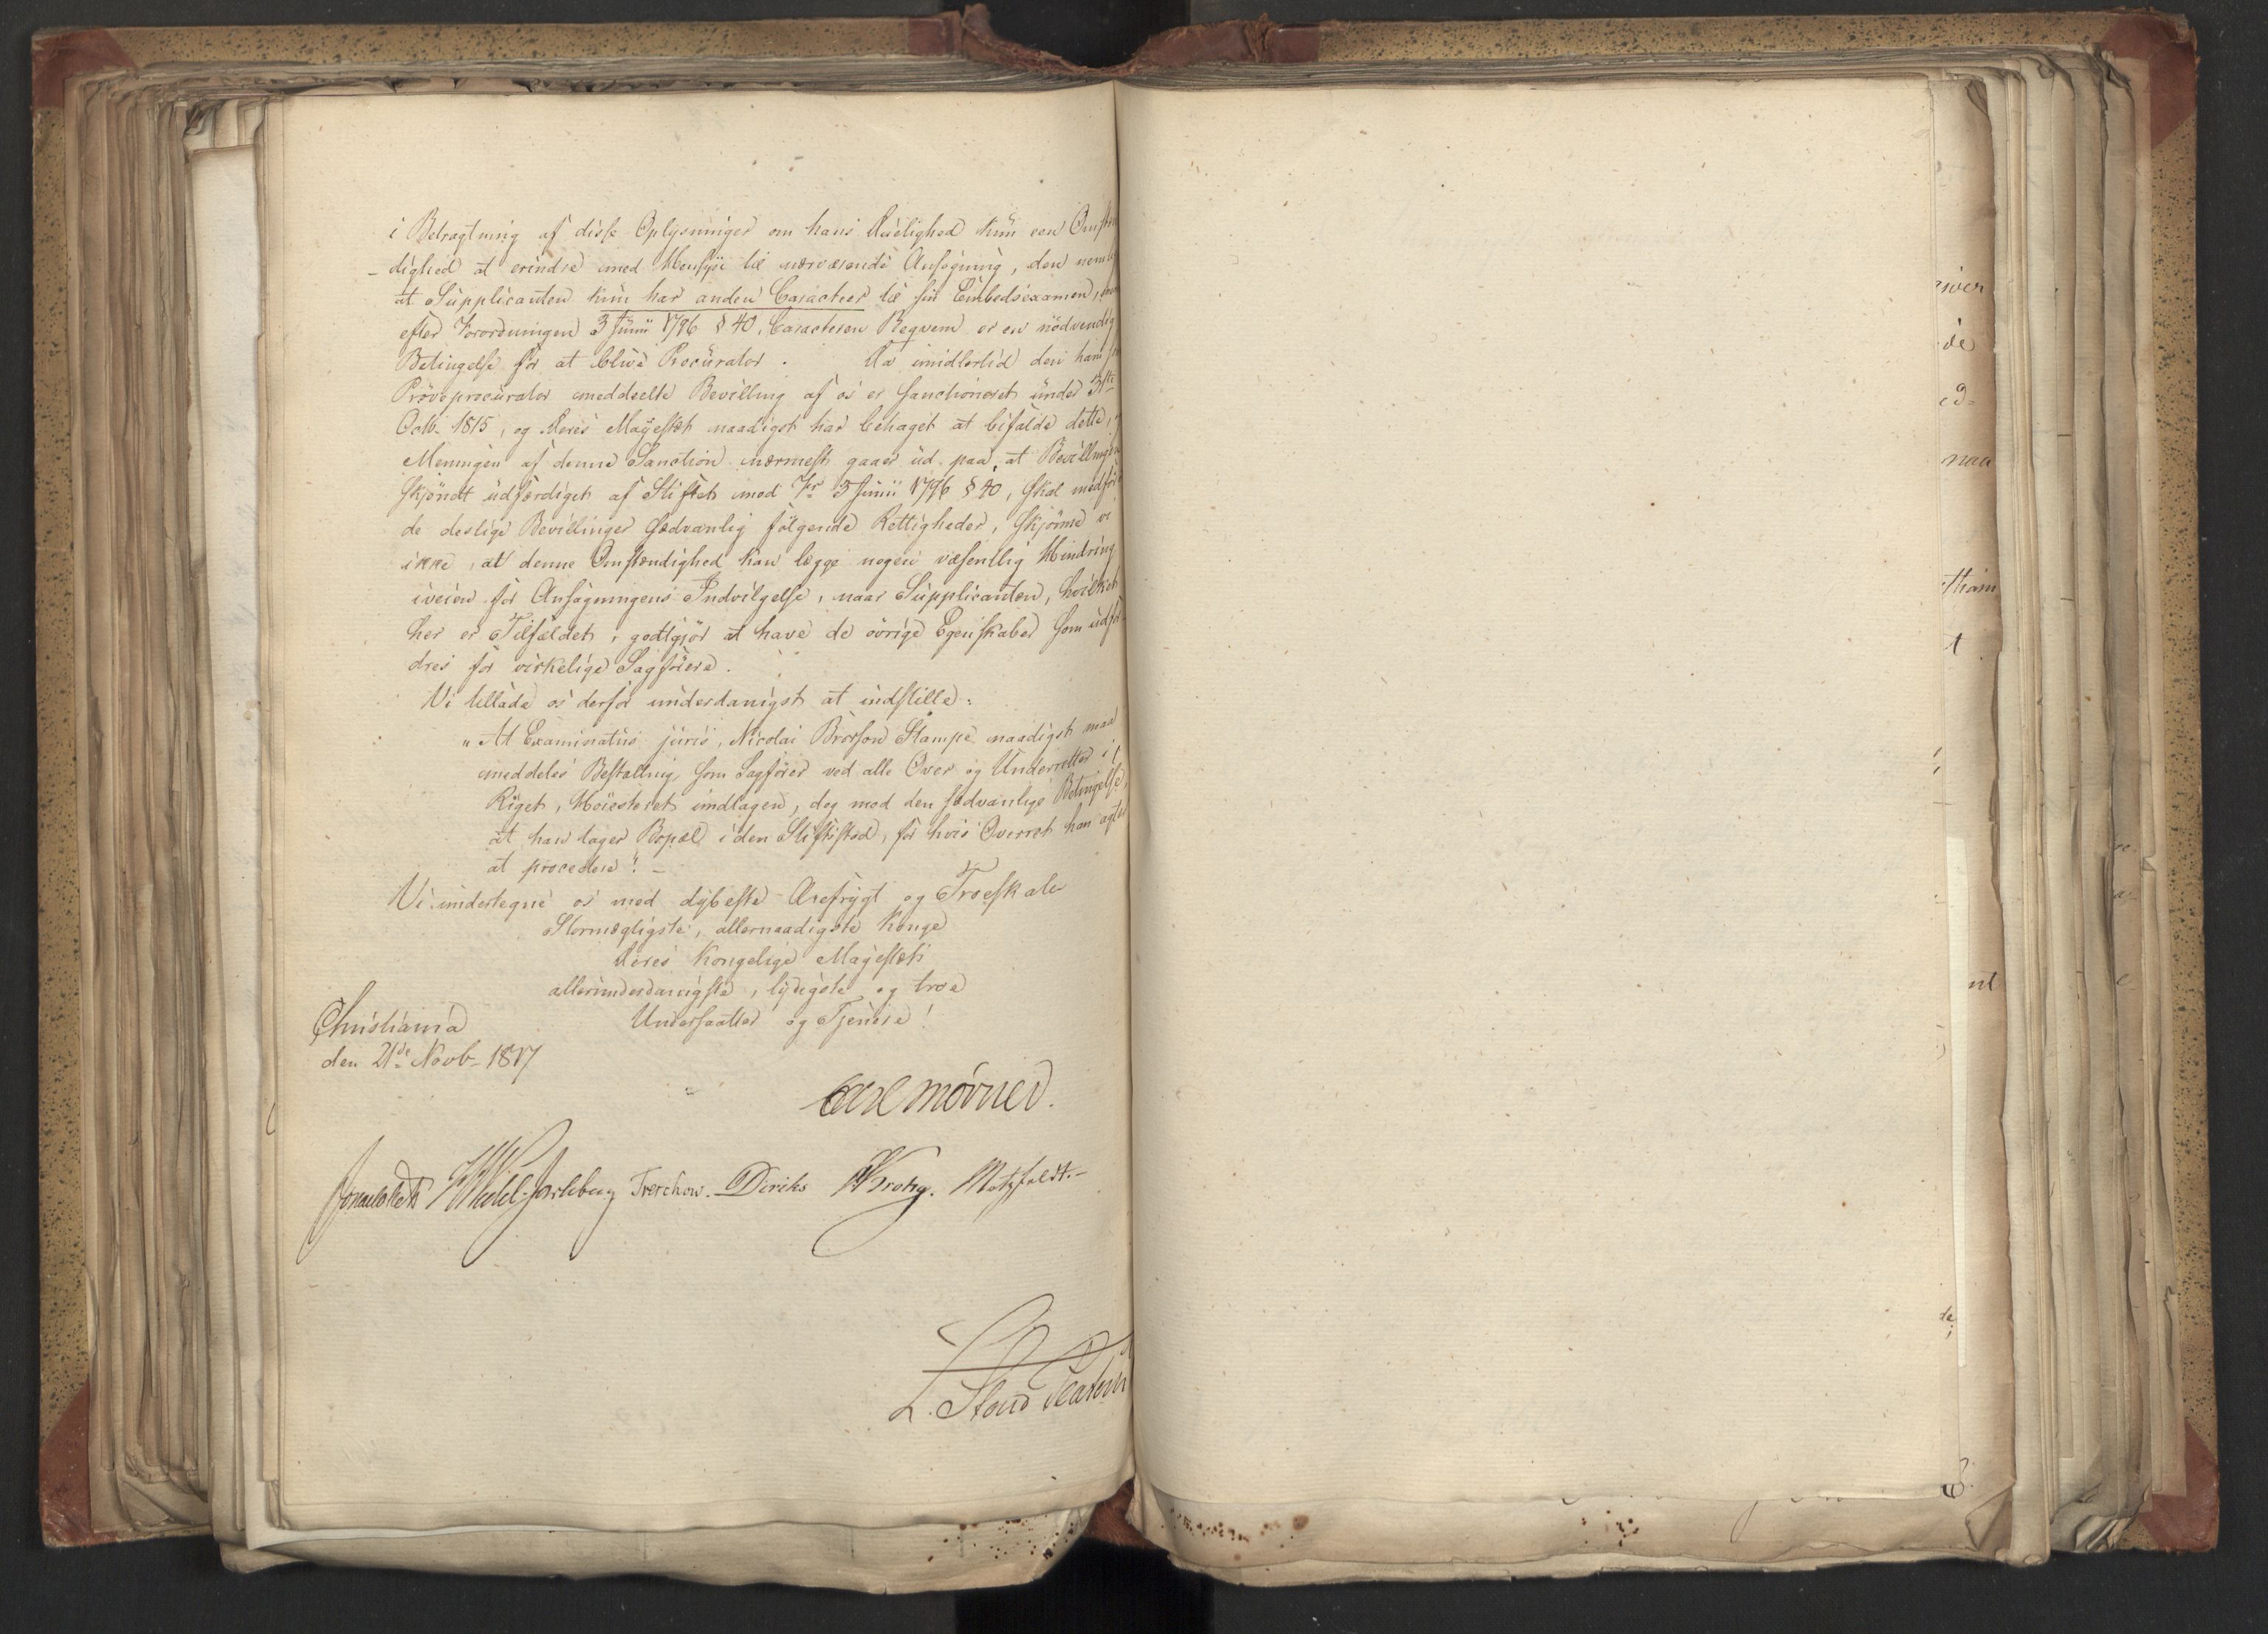 i Betragtning af disse Oplysninger om hans Duelighed kun een Omstæn
-dighed at erindre med Hensyn til nærværende Ansøgning, den neml
at Supplicanten kun har anden Caracteer til sin Embedsexamen,
efter Forordningen 3 Junii 1796 § 40, Caracteren Beqvem er en nødvendig
Betingelse for at blive Procurator. Da imidlertid den ham
Prøveprocurator meddeelte Bevilling af os er sanctioneret under 31te
Octb. 1815, og Deres Majestæt naadigst har behaget at bifalde dette,
Meningen af denne Sanction nærmest gaaer ud paa, at Bevillingen
skjøndt udfærdiget af Stiftet mod Fr 3 Junii 1796 § 40, skal medføre
de deslige Bevillinger sædvanlig følgende Rettigheder, skjønne vi
ikke, at denne Omstændighed kan lægge nogen væsentlig Hindring
iveien for Ansøgningens Indvilgelse, naar Supplicanten, hvilket
her er Tilfældet, godtgjør at have de øvrige Egenskaber som udfor-
dres for virkelige Sagførere.
Vi tillade os derfor underdanigst at indstille:
"At Examinatus juris, Nicolai Brorson Stampe naadigst maa
meddeles Bestalling som Sagfører ved alle Over og Underretter i
Riget, Høiesteret undtagen, dog mod den sædvanlige Betingelse,
at han tager Bopæl i den Stiftsstad, for hvis Overret han agter
at procedere". -
Vi undertegne os med dybeste Ærefrygt og Troeskab
Stormægtigste, allernaadigste Konge
Deres Kongelige Majestæts
allerunderdanigste, lydigste og troe
Undersaatter og Tjenere!
Christiania
den 21de Novb. 1817
Carl Mörner.
Sommerhielm HWedel-Jarlsberg Treschow. Diriks Krohg. Motzfeldt.-
L. Stoud Platou